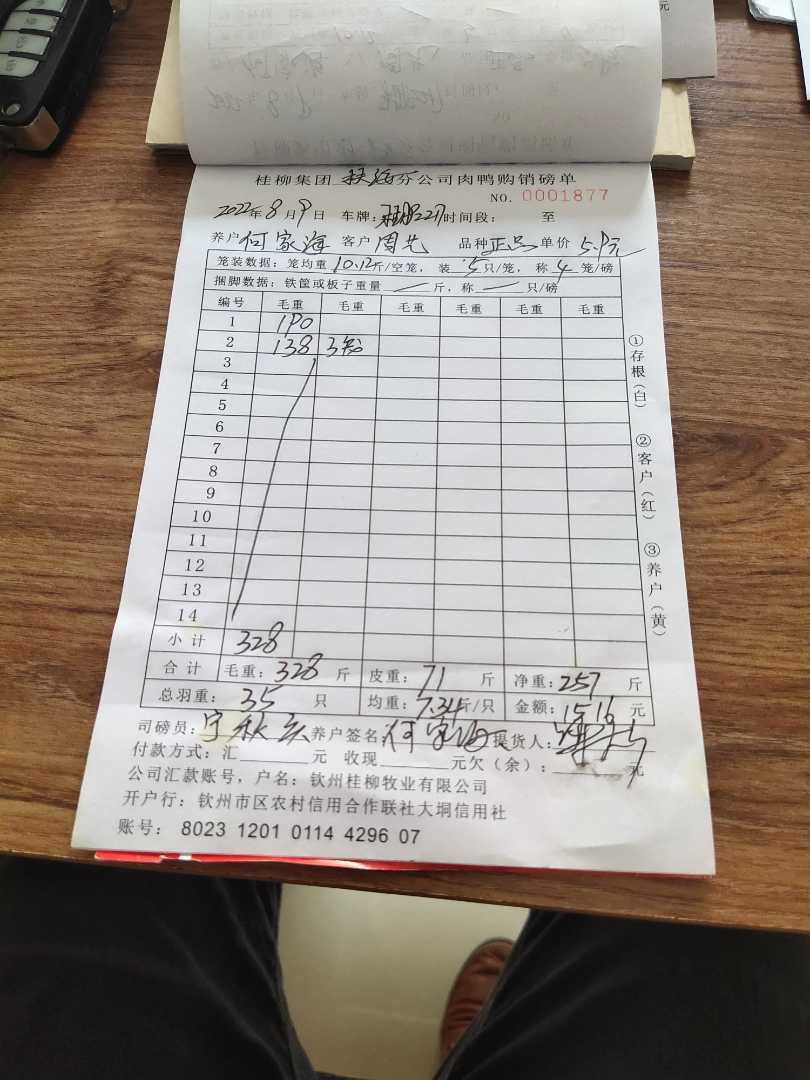 桂柳集团 钦海 分公司肉鸭购销磅单
NO. 0001877
2022年 8月 9日 车牌: 227 时间段: 至
养户 何家海 客户 周艺 品种 正品 单价 5.9元
笼装数据: 笼均重 10.12斤/空笼, 装 5 只/笼, 称 4 笼/磅
捆脚数据: 铁筐或板子重量 — 斤, 称 — 只/磅
编号 毛重 毛重 毛重 毛重 毛重 毛重
1 190
2 138 3笼
3
4
5
6
7
8
9
10
11
12
13
14
小计 328
合计 毛重: 328 斤 皮重: 71 斤 净重: 257 斤
总羽重: 35 只 均重: 7.34斤/只 金额: 1516 元
司磅员: 宁秋 养户签名: 何家海 提货人:
付款方式: 汇 元 收现 元欠(余): 元
公司汇款账号, 户名: 钦州桂柳牧业有限公司
开户行: 钦州市区农村信用合作联社大垌信用社
账号: 8023 1201 0114 4296 07
①存根(白) ②客户(红) ③养户(黄)